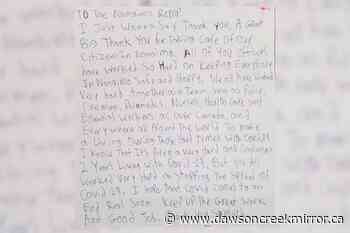 TO The
I Just Wanna Say Thank You, A Great
Big Thank You for taking Care of Our
Citizens in Nanaimo. All Of You
have Worked So Hard on Keeping Everybody
In Nanaimo Safe and Happy. We all have Worked
Very hard together as a Team Such as Police,
Firemen, Paramedics, Nurses, Health Care and
Essential Workers all Over Canada, and
Everywhere all Around the World To make
a Living During these hard times with Covid19.
I Know that Its been a very hard and
2 Years Living with Covid 19, But
Worked Very hard on Stopping The Spread of
Covid 19. I hope that Covid comes to an
End Real Soon. Keep up the Great Work
And Good Job.
www.dawsoncreekmirror.ca